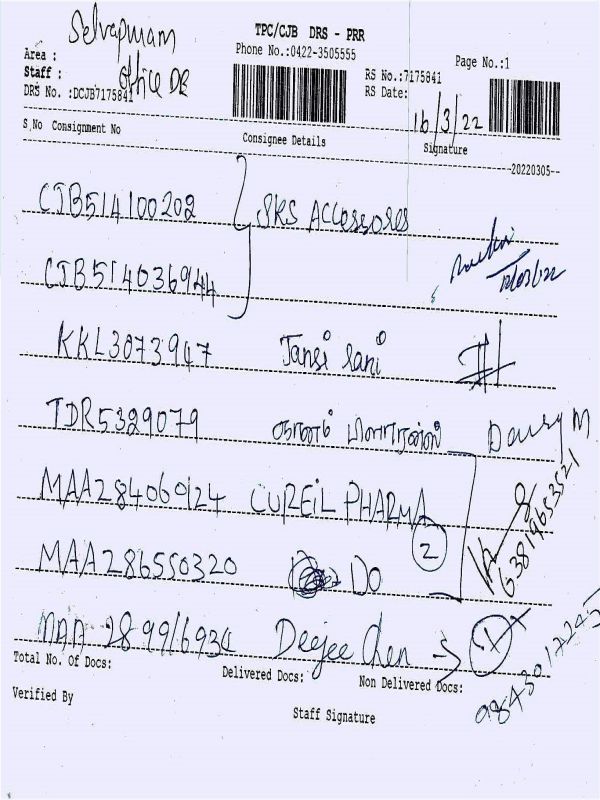 TPC/CJB DRS - PRR
Selvapuram
Phone No.:0422-3505555
Page No.:1
Area :
Staff : office DB
RS No.:7175841
DRS No. :DCJB7175841
RS Date: 16/3/22
S.No Consignment No Consignee Details Signature
20220305
CJB514100202 SKS Accessores
CJB514036944
KKL3873947 Jansi Rani
TDR5329079
MAA284069124 CUREIL PHARMA
2
6381965352
MAA286550320 Do
MAA 289916934 Deejee Chen
1
9843017245
Total No. Of Docs: Delivered Docs: Non Delivered Docs:
Verified By
Staff Signature